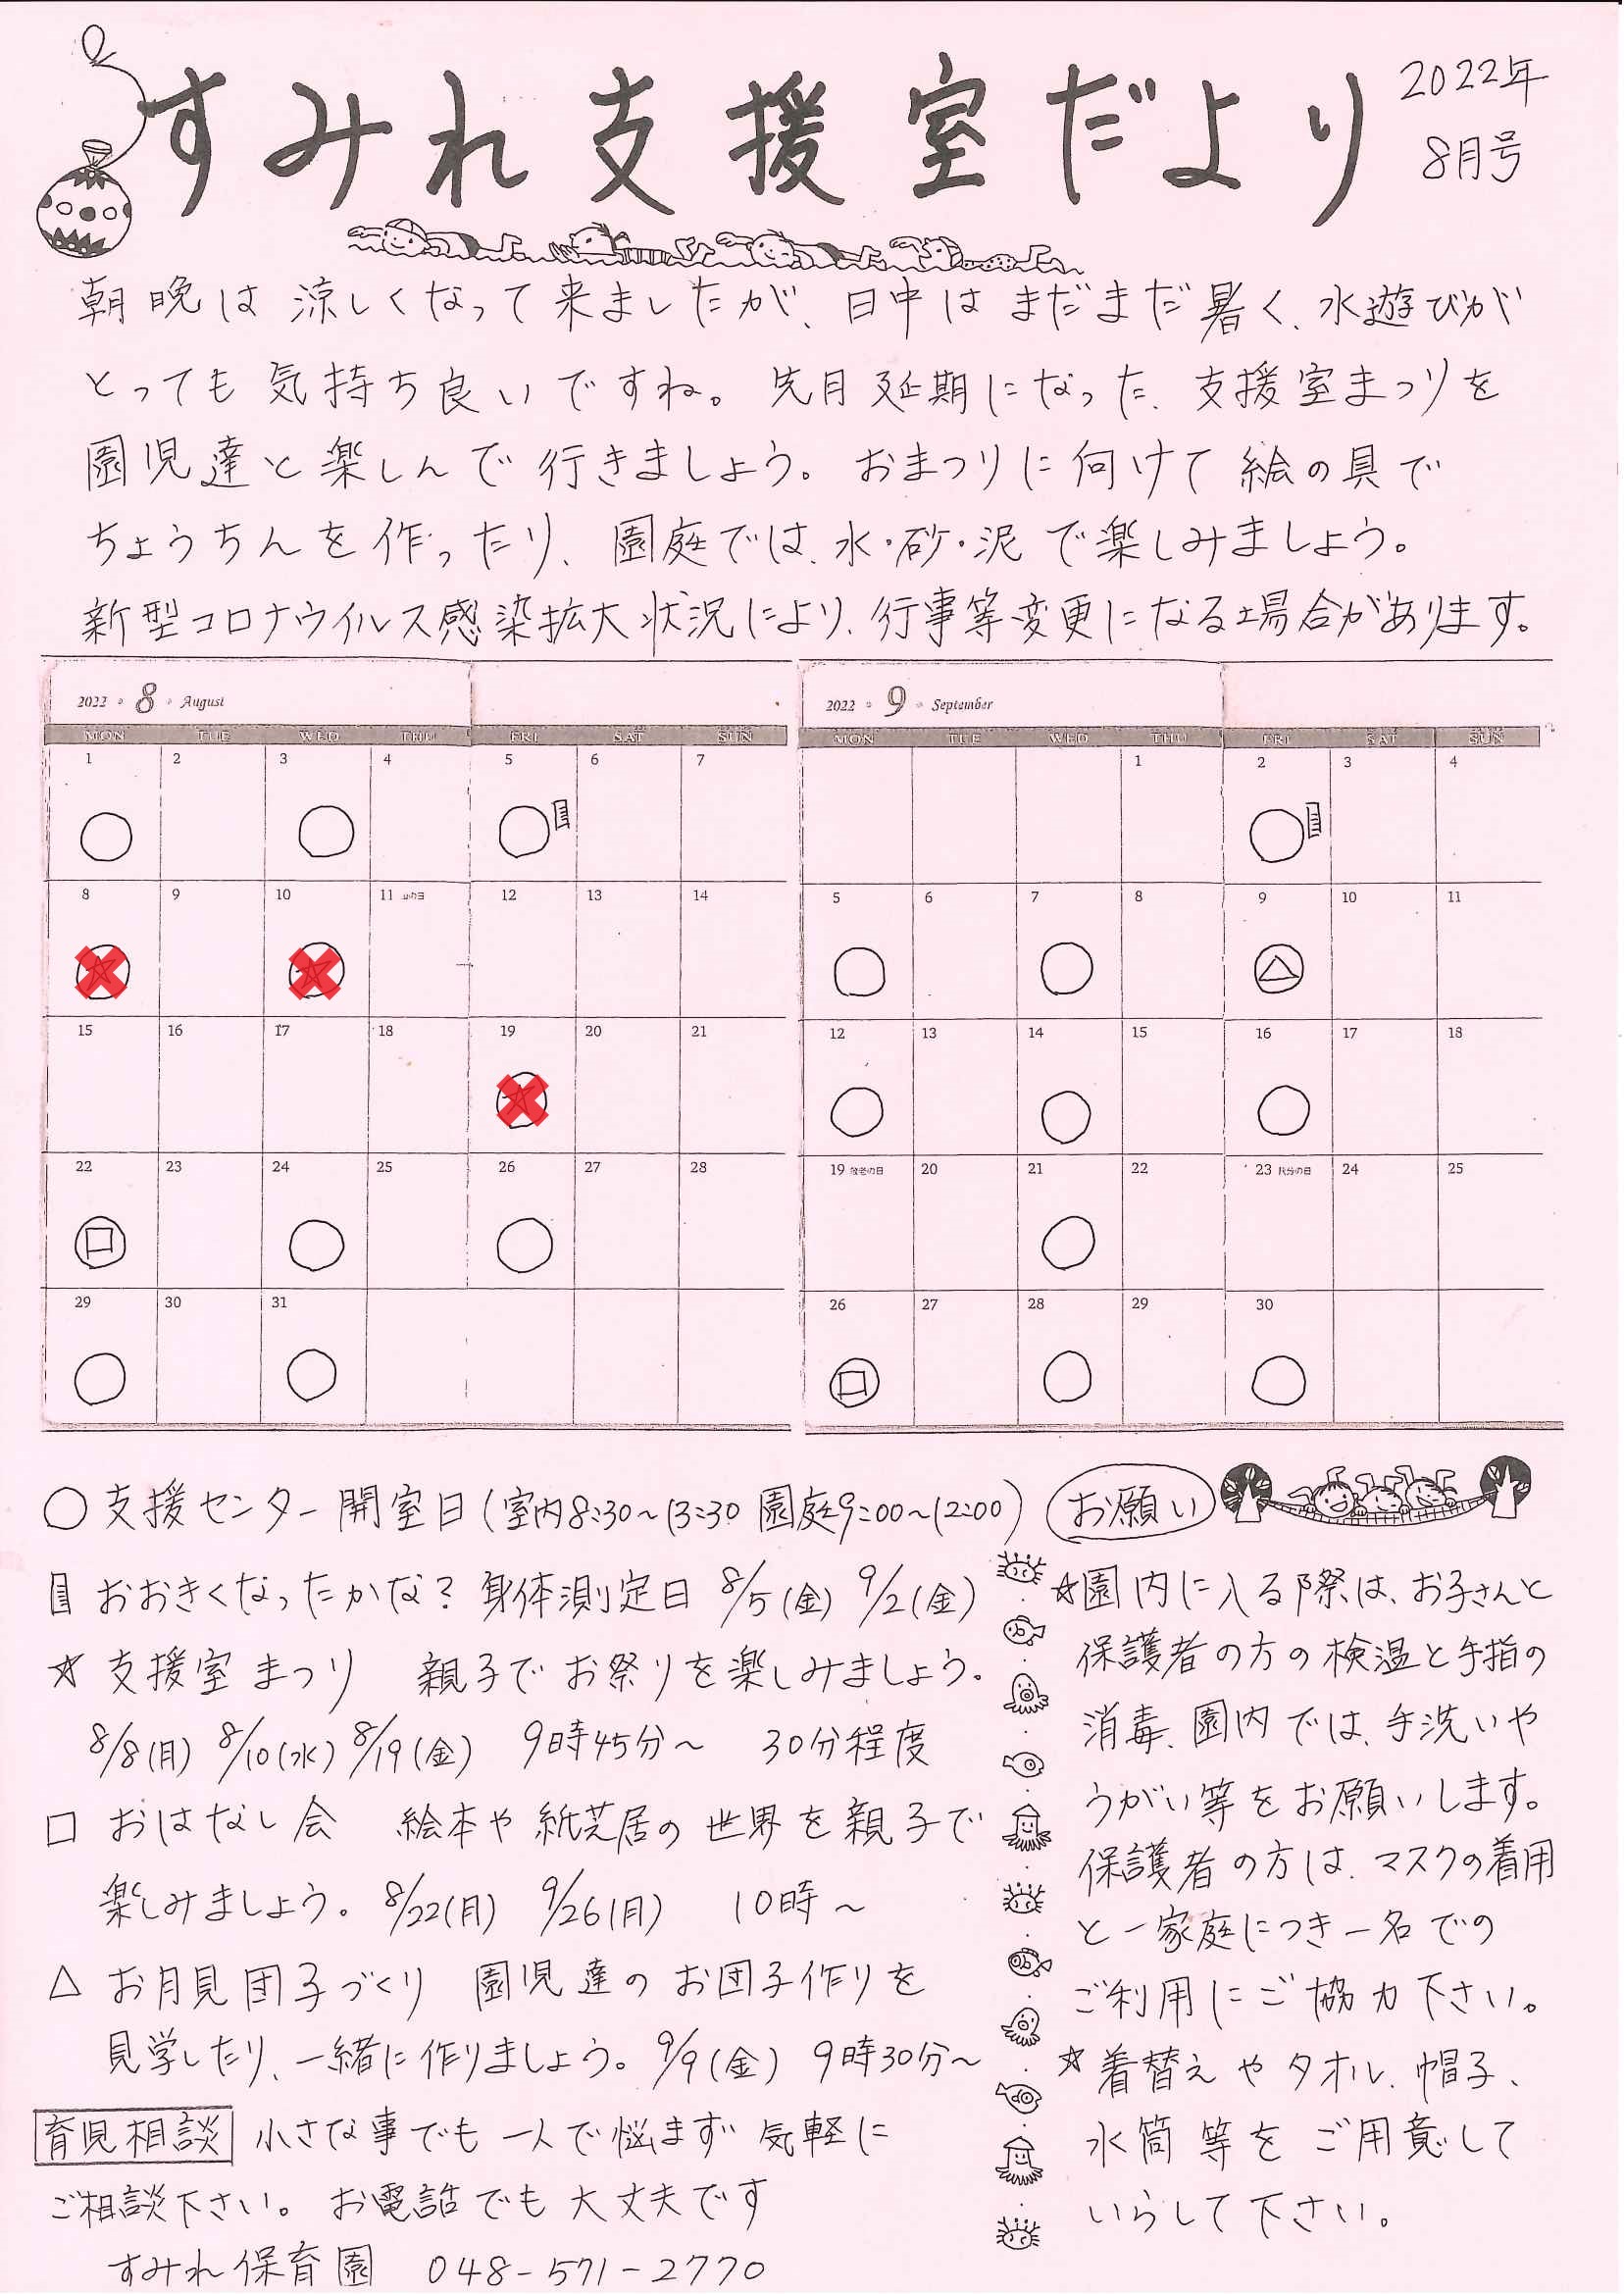 すみれ支援室だより
2022年
8月号
朝晩は涼しくなって来ましたが、日中はまだまだ暑く、水遊びが
とっても気持ち良いですね。先月延期になった、支援室まつりを
園児達と楽しんで行きましょう。おまつりに向けて絵の具で
ちょうちんを作ったり、園庭では、水・砂・泥で楽しみましょう。
新型コロナウイルス感染拡大状況により、行事等変更になる場合があります。
2022 8 August
MON TUE WED THU FRI SAT SUN
1 2 3 4 5 6 7
8 9 10 11 山の日 12 13 14
15 16 17 18 19 20 21
22 23 24 25 26 27 28
29 30 31
2022 9 September
MON TUE WED THU FRI SAT SUN
1 2 3 4
5 6 7 8 9 10 11
12 13 14 15 16 17 18
19 敬老の日 20 21 22 23 秋分の日 24 25
26 27 28 29 30
○ 支援センター開室日(室内8:30~13:30 園庭9:00~12:00)
おおきくなったかな? 身体測定日 8/5(金) 9/2(金)
☆ 支援室まつり 親子でお祭りを楽しみましょう。
8/8(月) 8/10(水) 8/19(金) 9時45分~ 30分程度
□ おはなし会 絵本や紙芝居の世界を親子で
楽しみましょう。8/22(月) 9/26(月) 10時~
△ お月見団子づくり 園児達のお団子作りを
見学したり、一緒に作りましょう。9/9(金) 9時30分~
育児相談 小さな事でも一人で悩まず気軽に
ご相談下さい。お電話でも大丈夫です
すみれ保育園 048-571-2770
お願い
☆園内に入る際は、お子さんと
保護者の方の検温と手指の
消毒、園内では、手洗いや
うがい等をお願いします。
保護者の方は、マスクの着用
と一家庭につき一名での
ご利用にご協力下さい。
☆着替えやタオル、帽子、
水筒等をご用意して
いらして下さい。